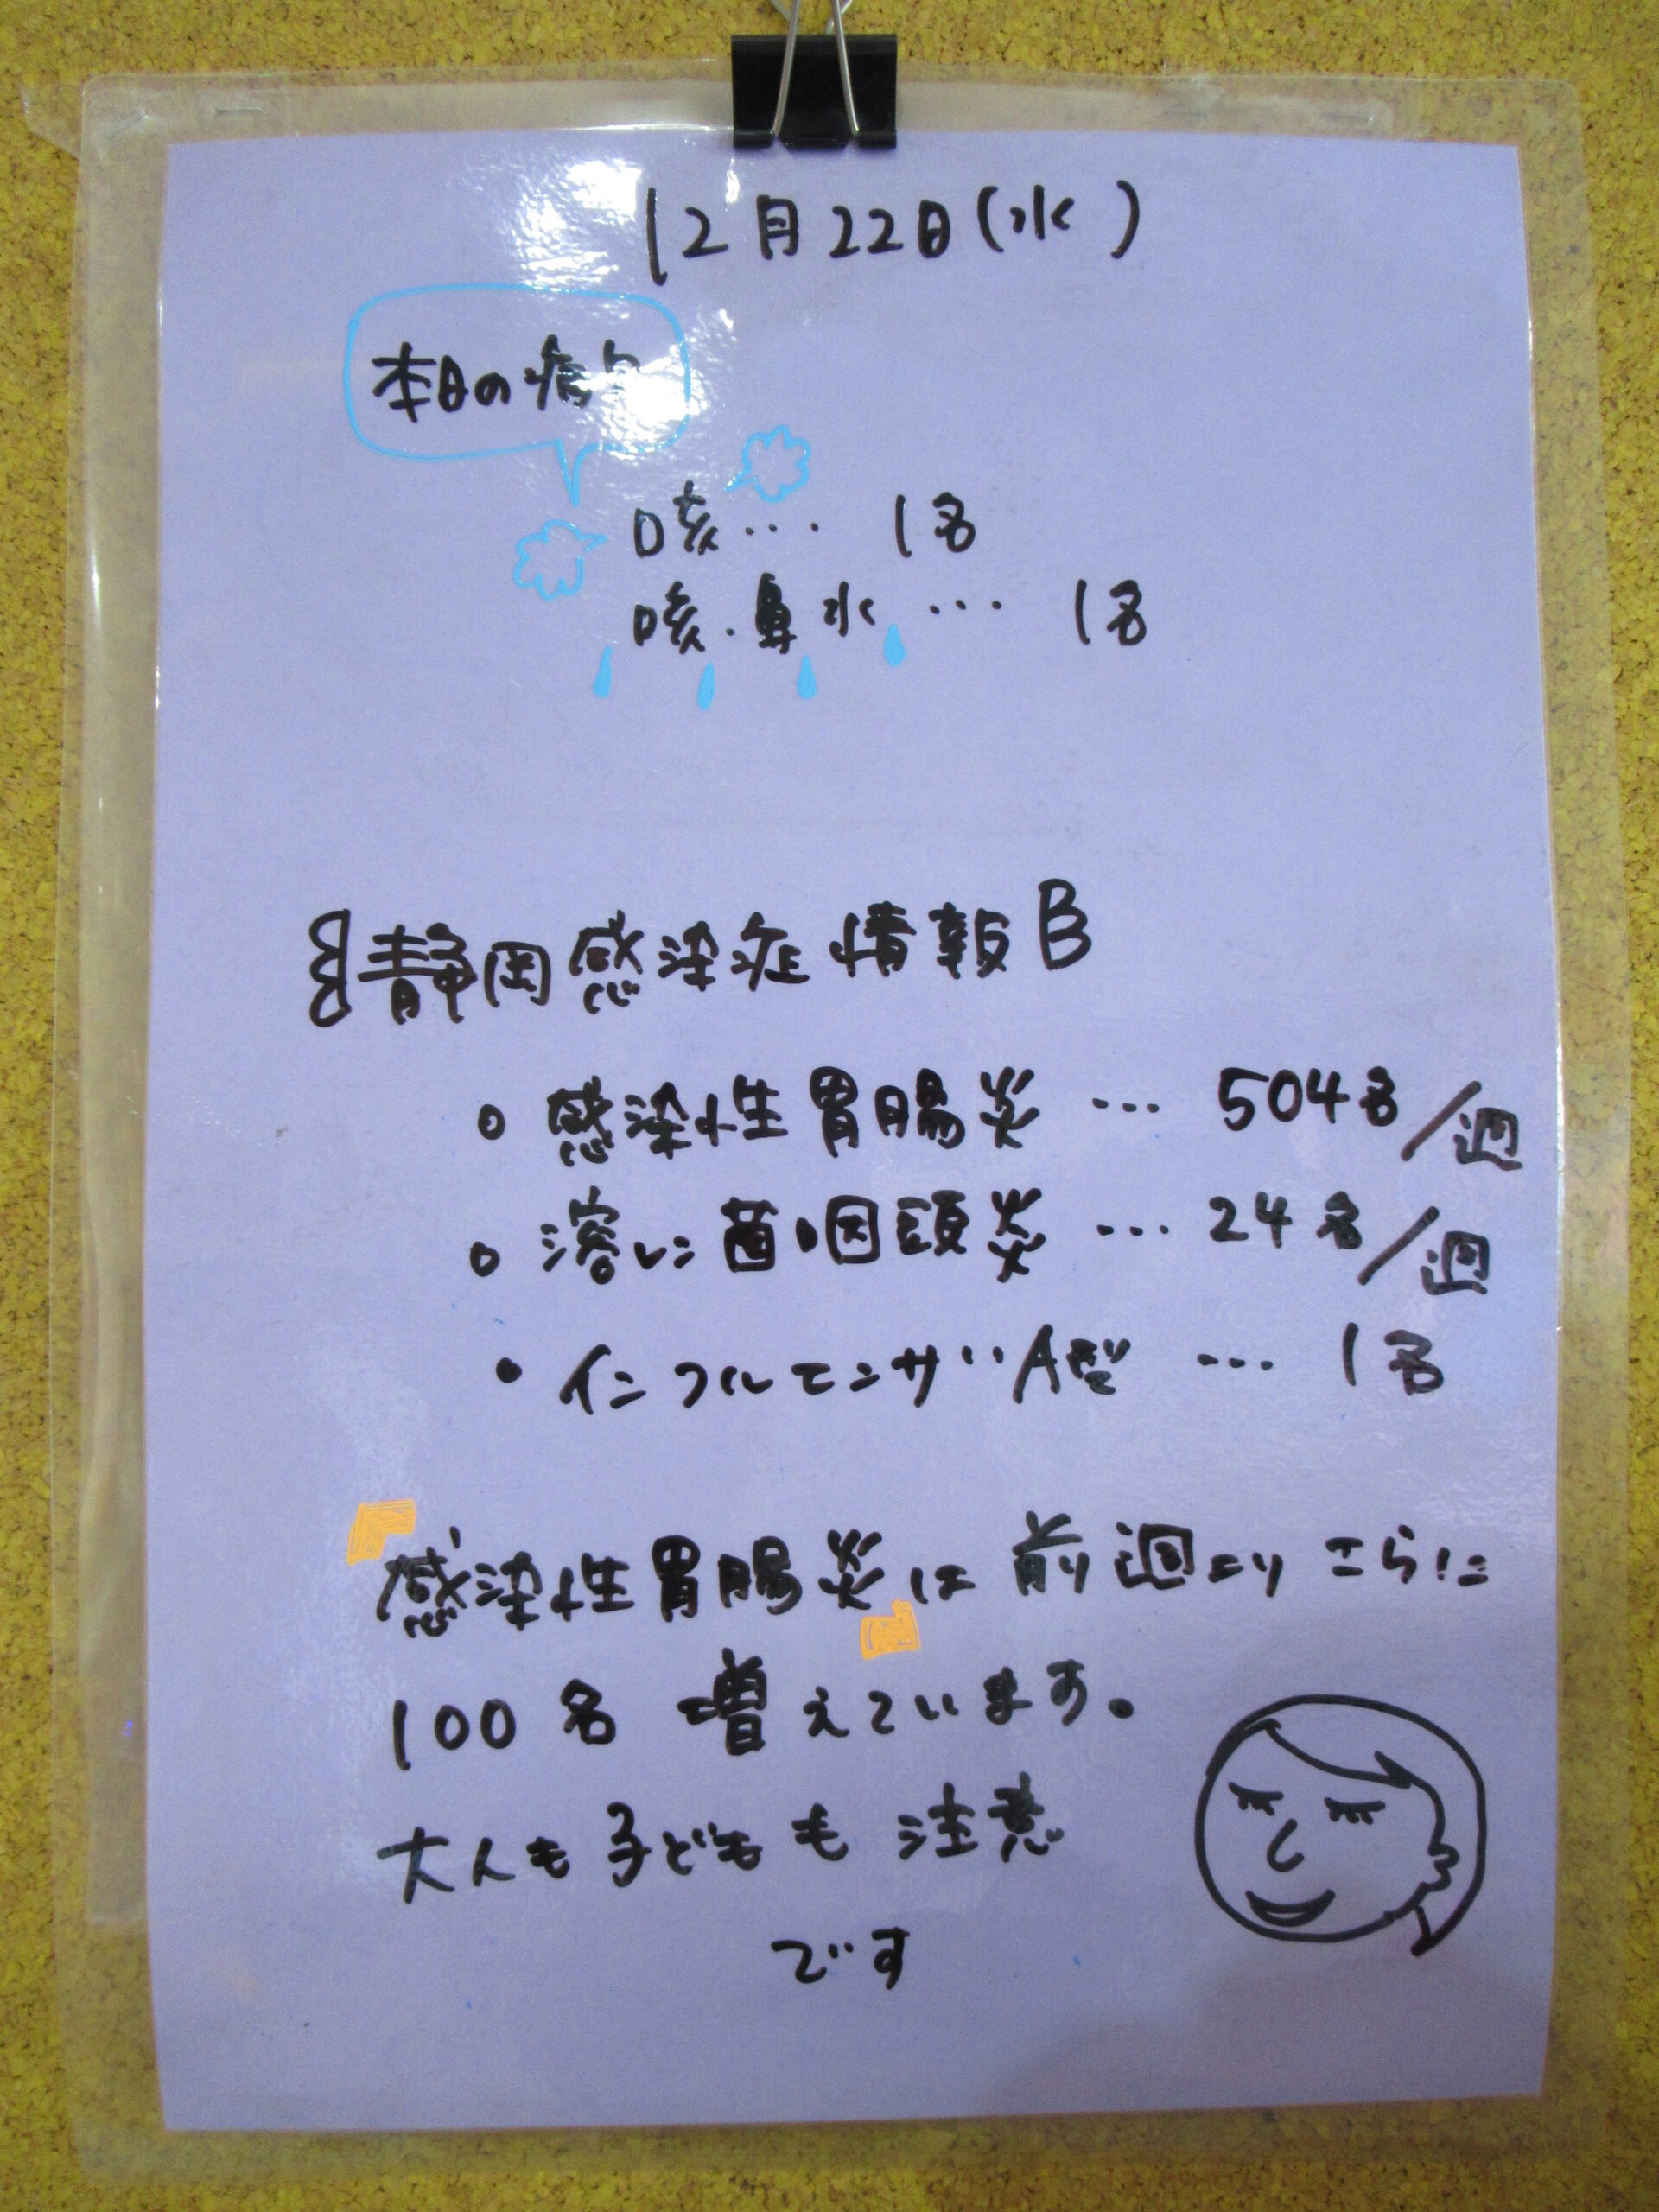 12月22日(水)
本日の病
咳… 1名
咳・鼻水… 1名
静岡感染症情報
○ 感染性胃腸炎… 504名/週
○ 溶レン菌咽頭炎… 24名/週
• インフルエンザA型… 1名
感染性胃腸炎は前週よりさらに
100名 増えています。
大人も子どもも注意
です